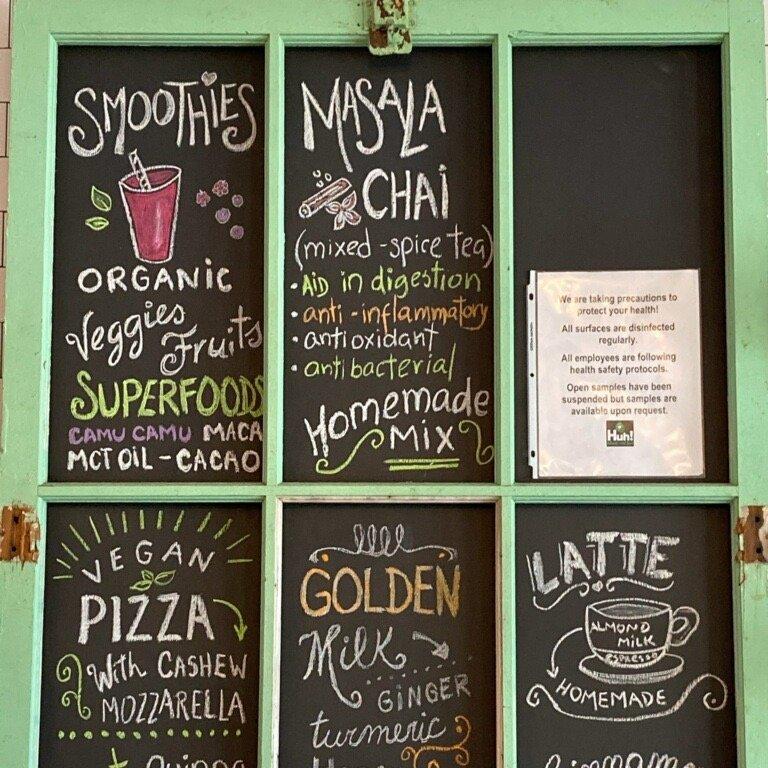 SMOOTHIES
ORGANIC
Veggies
Fruits
SUPERFOODS
CAMU CAMU MACA
MCT OIL - CACAO
MASALA
CHAI
(mixed-spice tea)
• AiD in digestion
• anti-inflammatory
• antioxidant
• antibacterial
Homemade
Mix
We are taking precautions to
protect your health!
All surfaces are disinfected
regularly.
All employees are following
health safety protocols.
Open samples have been
suspended but samples are
available upon request.
Huh!
VEGAN
PIZZA
With CASHEW
MOZZARELLA
GOLDEN
Milk
GINGER
turmeric
LATTE
ALMOND
MiLK
espresso
HOMEMADE